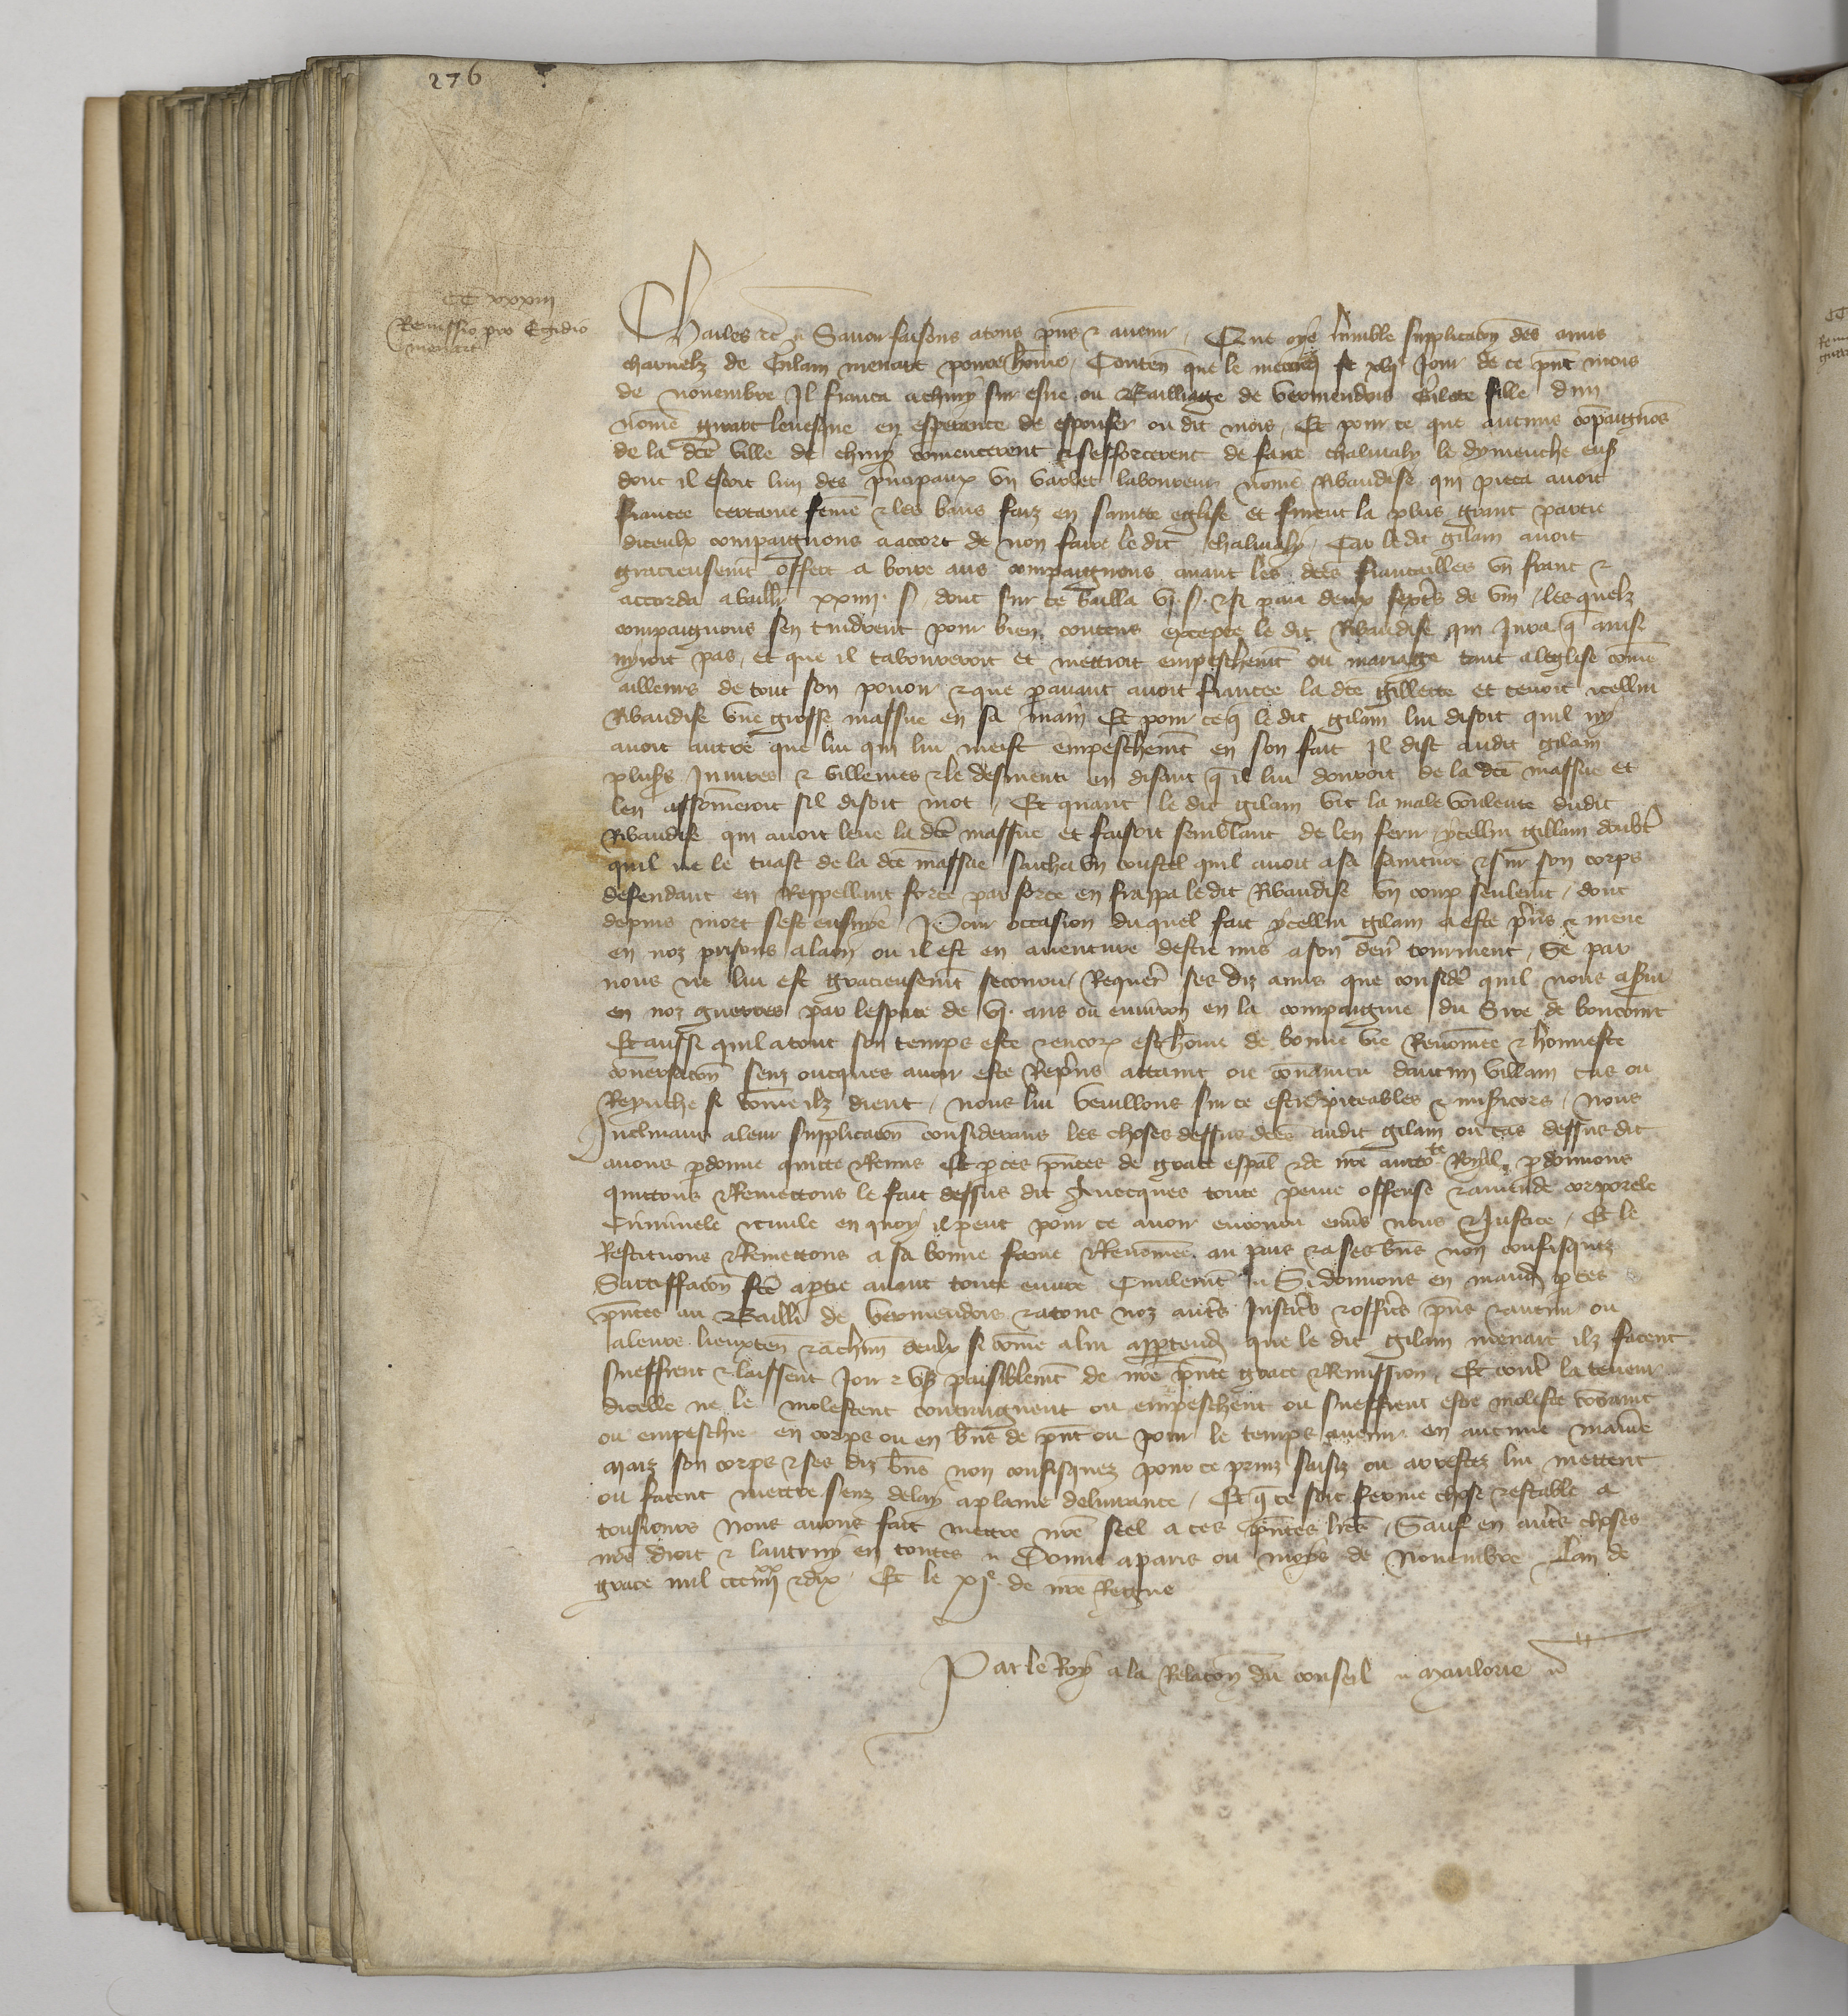 276
CC xxxiii
Remissio pro Egidio
menart
Charles etc Savoir faisons a tous pñs & avenir Que oye lumble supplicacõn des amis
charnelz de Gilam menart povre home Conteñ que le mercredi xvie Jour de ce pñt mois
de novembre Il fianca a chiny sur esne ou Bailliage de vermendois Gilete fille dun
nomẽ girart levesque en esperance de espouser ou dit mois Et pour ce que aucuns cõpaignõs
de la dcẽ ville de chiny comencerent & sefforcerent de faire chalivaly le dymenche ens
dont il estoit lun des principaux un varlet laboureur nomẽ Rbaudise qui pieca avoit
fiancee certaine femẽ & les bans faiz en saincte eglise et furent la plus grant partie
diceulx compaignons a acort de non faire le dit chalivaly Car le dit gilam avoit
gracieusemt offert a boire aus compaignons avant les dcẽs fiancailles un franc &
accorda a baillr xxiiii s dont sur ce bailla vi s & si paia deux sextrs de vin lesquelz
compaignons sen tindrent pour bien contens excepte le dit Rbaudise qui Jura q̃ ainsi
nyroit pas et que il tabourreroit et mettroit empeschemt ou mariage tant a leglise comẽ
ailleurs de tout son povoir & que pavant avoit fiancee la dcẽ gillette et tenoit icellui
Rbaudise une grosse massue en sa main Et pour ce q̃ le dit gilam lui disoit quil ny
avoit autre que lui qui lui meist empeschemt en son fait Il dist audit gilam
plusrs Injures & villenies & le desmenti en disant q̃ il lui donroit de la dcẽ massue et
len assomeroit sil disoit mot Et quant le dit gilam vit la male voulente dudit
Rbaudise qui avoit leve la dcẽ massue et faisoit semblant de len ferir ycellui gillam doubtt
quil ne le tuast de la dcẽ massue sacha un coustel quil avoit a sa sainture & sur son corps
defendant en Reppellant force par force en frappa le dit Rbaudise un coup seulemt dont
depuis mort sest ensuyve Pour occasion du quel fait ycellui gilam a este pris & mene
en noz prisons a lam ou il est en aventure destre mis a son derñ tourment Se par
nous ne lui est gracieusemt secouru Requert ses diz amis que considẽ quil nous a servi
en noz guerres par lespace de vi ans ou environ en la compaignie du Sire de
Et aussi quil a tout son temps este & encor est home de bonne vie Renomee & honneste
cõversacõn senz oncques avoir este Repris attaint ou convaincu daucun villain cas ou
Reprouche si come ilz dient nous lui veuillons sur ce estre piteables & misricors Nous
Inclinans a leur supplicacõn considerans les choses dessus dcẽs audit gilam ou cas dessus dit
avons pdonne quitte & Remis Et p ces pñtes de grace espãl & de nre auctote Royal pdonnons
quittons & Remettons le fait dessus dit Avecques toute peine offense & amende corporele
Criminele & civile en quoy il peut pour ce avoir encouru envrs nous & Justice Et le
Restituons & Remettons a sa bonne fame & Renomee au pais & a ses bñs non confisquez
Satiffacõn fcẽ a ptie avant toute euvre Civilemt Si donnons en mandt p ces
pñtes au Bailli de vermendois & a tous noz autrs Justicrs & officrs pñs & avenir ou
a leurs lieuxteñ & a chũn deulx si come a lui apptendra que le dit gilam menart ilz facent
sueffrent & laissent Joir & usr paisiblemt de nre pñte grace & Remission Et contre la teneur
dicelle ne le molestent contraignent ou empeschent ou sueffrent estre moleste contraint
ou empeschie en corps ou en bñs de pñt ou pour le temps avenir en aucune maniere
Maiz son corps & ses diz bñs non confisquez pour ce prinz saisiz ou arrestez lui mettent
ou facent mettre senz delay a plaine delivrance Et q̃ ce soit ferme chose & estable a
tousjours Nous avons fait mettre nre seel a ces pñtes lrẽs Sauf en autrs choses
nre droit & lautruy en toutes Donne a paris ou moys de Novembre Lan de
grace mil ccc iiiixx & dix Et le xie de nre Regne
Par le Roy a la Relacõn du conseil Maulorie